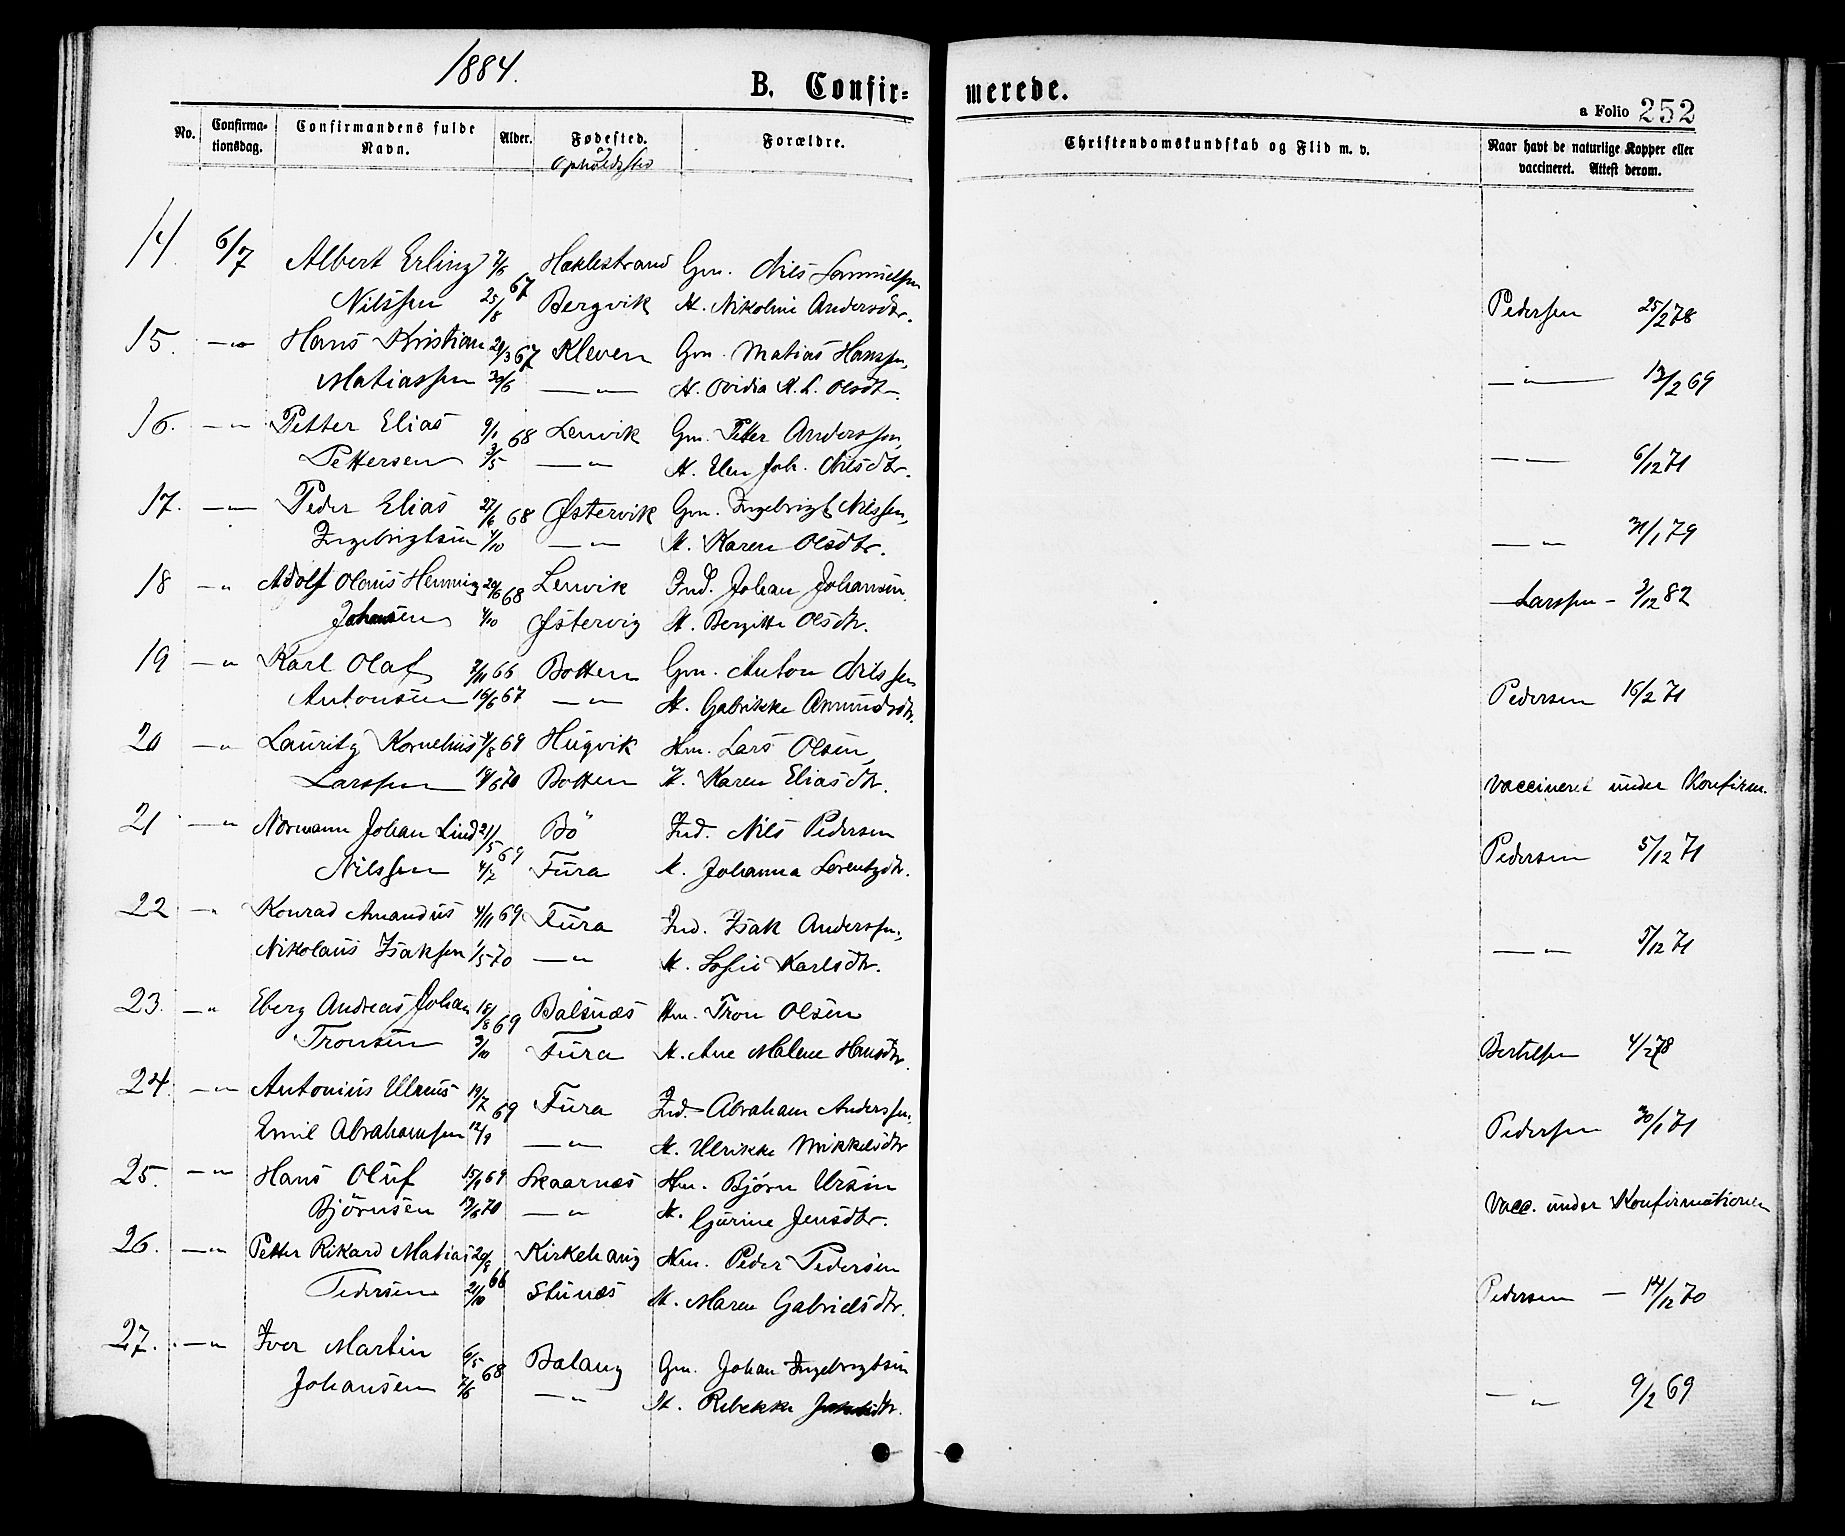 1884.
B. Confir= merede.
a Folio 252
No. Confirma-tionsdag. Confirmandens fulde Navn. Alder. Fødested. og Opholdssted Forældre. Christendomskundskab og Flid m. v. Naar havt de naturlige Kopper eller vaccineret. Attest derom.
14 6/7 Albert Erling Haklestrand Gm. Nils Samuelsen
Nilssen 25/8 67 Bergvik H. Nikoline Andersdtr. Pedersen 25/2 78
15. —"— Hans Kristian 29/3 67 Kleven Gm. Matias Hanssen,
Matiassen 30/6 —"— H. Ovidia K. L. Olsdtr. —"— 13/2 69
16. —"— Petter Elias 9/1 68 Lenvik Gm. Petter Anderssen,
Pettersen 3/5 —"— H. Elen Joh. Nilsdtr. —"— 6/12 71
17. —"— Peder Elias 27/6 68 Østervik Gm. Ingebrigt Nilssen,
Ingebrigtsen 4/10 —"— H. Karen Olsdtr. —"— 31/1 79
18 —" Adolf Olaus Henning 20/6 68 Lenvik Ind. Johan Johansen
Johansen 4/10 Østervig H. Bergitte Olsdtr. Larssen – 3/12 82
19 —" Karl Olaf 7/11 66 Botten Gm. Anton Nilssen
Antonsen 16/6 67 —"— H. Gabrikke Amundsdtr. Pedersen 16/2 71
20 —" Lauritz Kornelius 4/8 69 Hugvik Hm. Lars Olsen
Larssen 19/6 70 Botten H. Karen Eliasdtr. Vaccineret under Konfirm.
21 —" Normann Johan Lind 21/5 Bö Ind. Nils Pedersen
Nilssen 4/7 69 Fura H. Johanna Lorentzdtr. Pedersen 5/12 71
22 —" Konrad Amandus 4/11 69 Fura Ind. Isak Anderssen,
Nikolaus Isaksen 1/5 70 —"— H. Sofie Karlsdtr. —"— 5/12 71
23. —" Eberg Andreas Johan 18/8 69 Balsnæs Hm. Tron Olsen
Tronsen 3/10 Fura H. Ane Malene Hansdtr. Bertelsen 4/2 78
24. —"— Antonius Ulrens 19/7 69 Fura Ind. Abraham Anderssen,
Emil Abrahamsen 12/9 —"— H. Ulrikke Mikkelsdtr Pedersen 30/1 71
25. —"— Hans Oluf 15/11 69 Skaarnæs Hm. Bjørn Ursin
Björnsen 19/6 70 —"— H. Gjurine Jensdtr. Vacc. under Konfirmationen
26. —"— Petter Rikard Matias 20/8 Kirkehaug Hm. Peder Pedersen
Pedersen 21/10 66 Stunæs H. Maren Gabrielsdtr. Pedersen — 14/12 70
27. —"— Iver Martin 6/5 Balaug Gm. Johan Ingebrigtsen
Johansen 7/6 68 —"— H. Rebekka —" 9/2 69